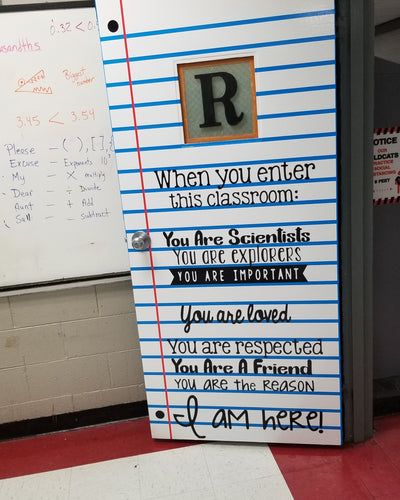 0.32 < 0.
usandths
Biggest number
3.45 < 3.54
Please — ( ), [ ], {
Excuse — Exponents 10
My — × Multiply
Dear — ÷ Divide
Aunt — + Add
Sall — - subtract
R
When you enter
this classroom:
You Are Scientists
You are explorers
YOU ARE IMPORTANT
You are loved
You are respected
You Are A Friend
you are the reason
I am here!
NOTICE
OUR
WILDCATS
PRACTICE
SOCIAL
DISTANCING
6 FEET